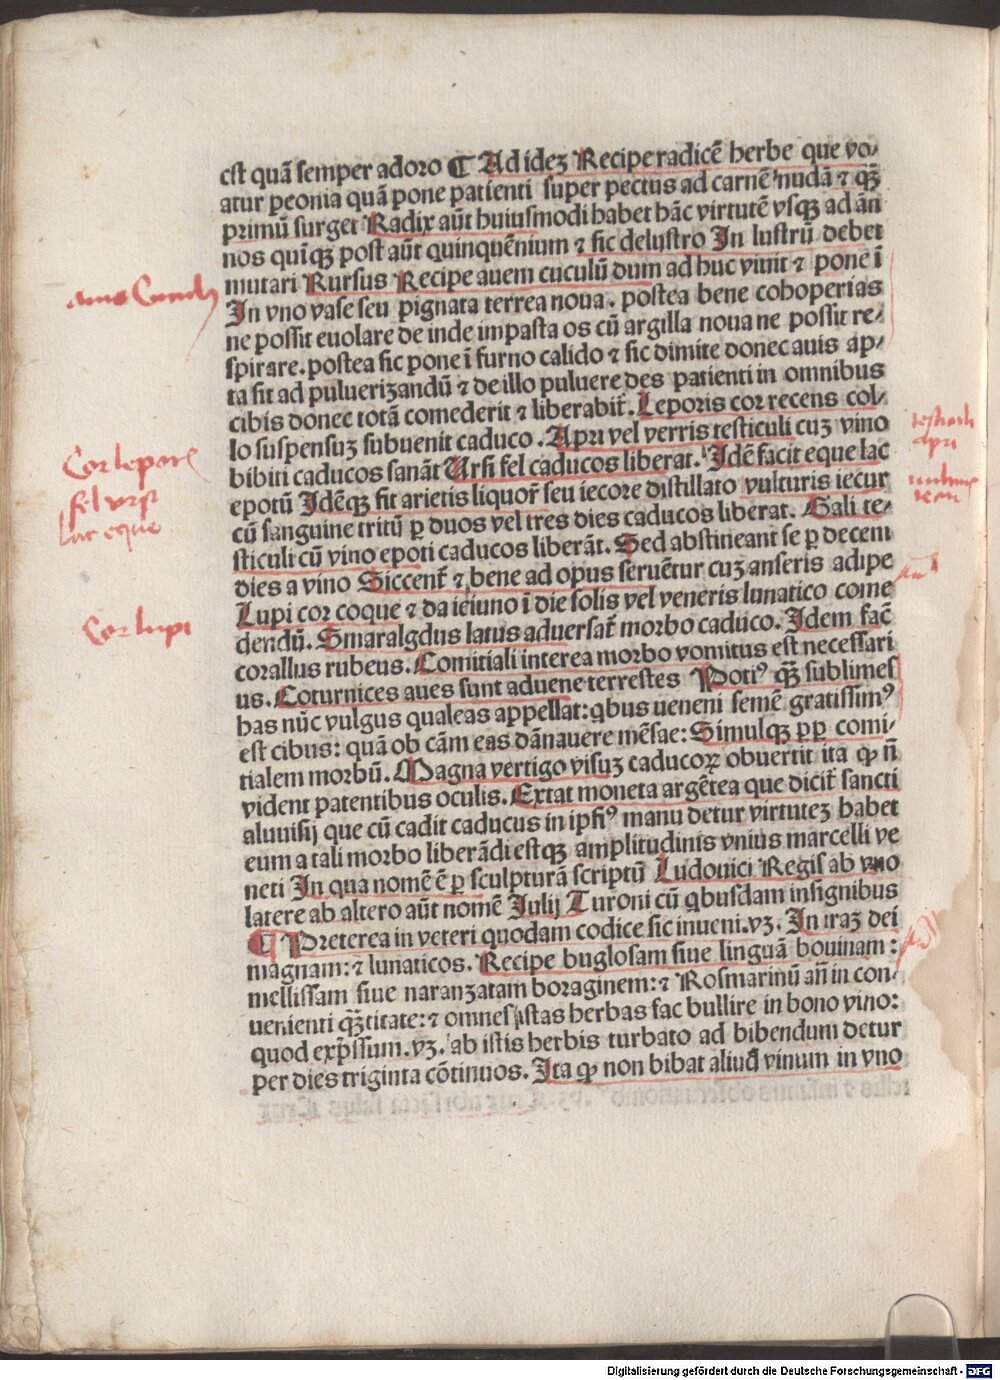 est quā semper adoro ¶ Ad ideʒ Recipe radicē herbe que vo-
atur peonia quā pone patienti super pectus ad carnē nudā ⁊ qꝫ
primū surget Radix aūt huiusmodi habet hāc virtutē vsqꝫ ad ān
nos quīqꝫ post aūt quinquēnium ⁊ sic delustro In lustrū debet
mutari Rursus Recipe auem cuculū dum ad huc viuit ⁊ pone ī
In vno vase seu pignata terrea noua. postea bene cohoperias
ne possit euolare de inde impasta os cū argilla noua ne possit re-
spirare. postea sic pone ī furno calido ⁊ sic dimite donec auis ap-
ta sit ad puluerizandū ⁊ de illo puluere des patienti in omnibus
cibis donec totā comederit ⁊ liberabit̄. Leporis cor recens col-
lo suspensuʒ subuenit caduco. Apri vel verris testiculi cuʒ vino
bibiti caducos sanāt Ursi fel caducos liberat. Idē facit eque lac
epotū Idēqꝫ fit arietis liquor̄ seu iecore distillato vulturis iecur
cū sanguine tritū ꝑ duos vel tres dies caducos liberat. Gali te-
sticuli cū vino epoti caducos liberāt. Sed abstineant se ꝑ decem
dies a vino Siccent̄ ⁊ bene ad opus seruētur cuʒ anseris adipe
Lupi cor coque ⁊ da ieiuno ī die solis vel veneris lunatico come
dendū. Smaralgdus latus aduersat̄ morbo caduco. Idem fac̄
corallus rubeus. Comitiali interea morbo vomitus est necessari
us. Coturnices aues sunt aduene terrestes Poti⁹ qꝫ sublimes
has nūc vulgus qualeas appellat: qbus ueneni semē gratissim⁹
est cibus: quā ob cām eas dānauere mēsae: Simulqꝫ ꝓꝑ comi-
tialem morbū. Magna vertigo visuʒ caducoꝝ obuertit ita ꝙ ñ
vident patentibus oculis. Extat moneta argētea que dicit̄ sancti
aluuisij que cū cadit caducus in ipsi⁹ manu detur virtuteʒ habet
eum a tali morbo liberādi estqꝫ amplitudinis vnius marcelli ve
neti In qua nomē ē ꝑ sculpturā scriptū Ludouici Regis ab vno
latere ab altero aūt nomē Julij Turoni cū qbusdam insignibus
¶ Preterea in veteri quodam codice sic inueni. vʒ. In iraʒ dei
magnam: ⁊ lunaticos. Recipe buglosam siue linguā bouinam:
mellissam siue naranzatam boraginem: ⁊ Rosmarinū añ in con-
uenienti qꝫtitate: ⁊ omnes istas herbas fac bullire in bono vino:
quod exp̄ssum. vʒ. ab istis herbis turbato ad bibendum detur
per dies triginta cōtinuos. Ita ꝙ non bibat aliud vinum in vno
Cor lepor
fel vrsi
lac eque
Cor lupi
apri
Digitalisierung gefördert durch die Deutsche Forschungsgemeinschaft - DFG